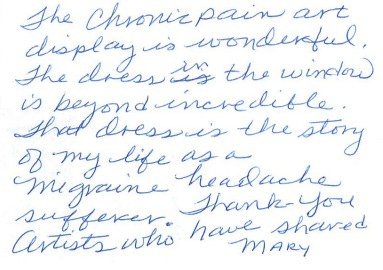 The Chronic pain art
display is wonderful.
The dress in the window
is beyond incredible.
That dress is the story
of my life as a
migraine headache
sufferer. Thank-You
Artists who have shared
MARY